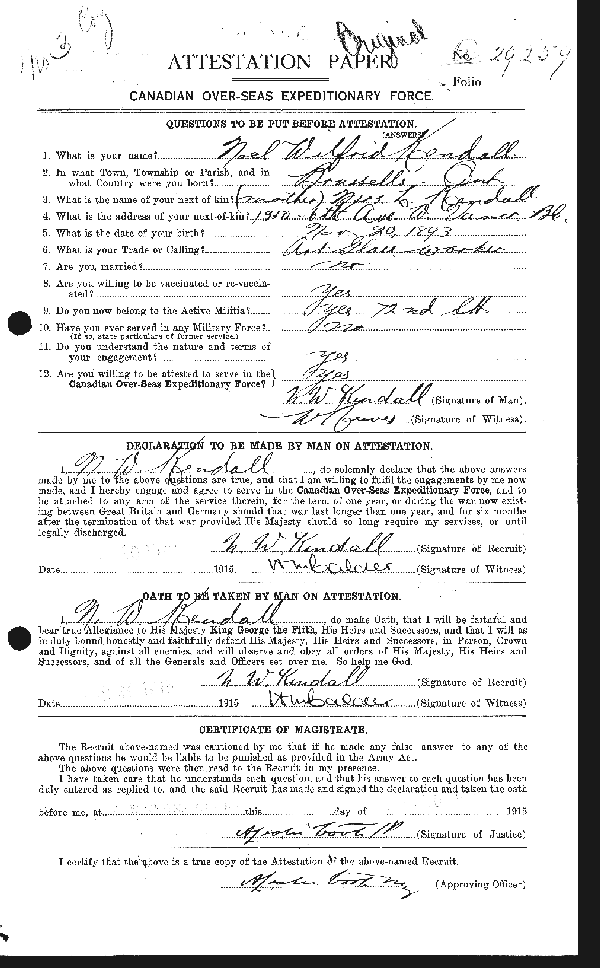 Original
ATTESTATION PAPER
No 29257
Folio
CANADIAN OVER-SEAS EXPEDITIONARY FORCE.
QUESTIONS TO BE PUT BEFORE ATTESTATION.
(ANSWERS)
1. What is your name? Noel Wilfrid Kendall
2. In what Town, Township or Parish, and in
what Country were you born? Brussells Ont
3. What is the name of your next of kin? (mother) Mrs L Kendall
4. What is the address of your next-of-kin? 6th Ave W
5. What is the date of your birth? 20, 1893
6. What is your Trade or Calling? Art Glass worker
7. Are you, married? no
8. Are you willing to be vaccinated or re-vaccin-
ated? Yes
9. Do you now belong to the Active Militia? yes 72nd
10. Have you ever served in any Military Force? no
(If so, state particulars of former service)
11. Do you understand the nature and terms of
your engagement? Yes
12. Are you willing to be attested to serve in the
Canadian Over-Seas Expeditionary Force? Yes
N W Kendall (Signature of Man).
(Signature of Witness).
DECLARATION TO BE MADE BY MAN ON ATTESTATION.
I, N W Kendall, do solemnly declare that the above answers
made by me to the above questions are true, and that I am willing to fulfil the engagements by me now
made, and I hereby engage and agree to serve in the Canadian Over-Seas Expeditionary Force, and to
be attached to any arm of the service therein, for the term of one year, or during the war now exist-
ing between Great Britain and Germany should that war last longer than one year, and for six months
after the termination of that war provided His Majesty should so long require my services, or until
legally discharged.
N W Kendall (Signature of Recruit)
Date 1915. (Signature of Witness)
OATH TO BE TAKEN BY MAN ON ATTESTATION.
I, N W Kendall, do make Oath, that I will be faithful and
bear true Allegiance to His Majesty King George the Fifth, His Heirs and Successors, and that I will as
in duty bound honestly and faithfully defend His Majesty, His Heirs and Successors, in Person, Crown
and Dignity, against all enemies, and will observe and obey all orders of His Majesty, His Heirs and
Successors, and of all the Generals and Officers set over me. So help me God.
N W Kendall (Signature of Recruit)
Date 1915 (Signature of Witness)
CERTIFICATE OF MAGISTRATE.
The Recruit above-named was cautioned by me that if he made any false answer to any of the
above questions he would be liable to be punished as provided in the Army Act.
The above questions were then read to the Recruit in my presence.
I have taken care that he understands each question, and that his answer to each question has been
duly entered as replied to, and the said Recruit has made and signed the declaration and taken the oath
before me, at this day of 1915
(Signature of Justice)
I certify that the above is a true copy of the Attestation of the above-named Recruit.
(Approving Officer)